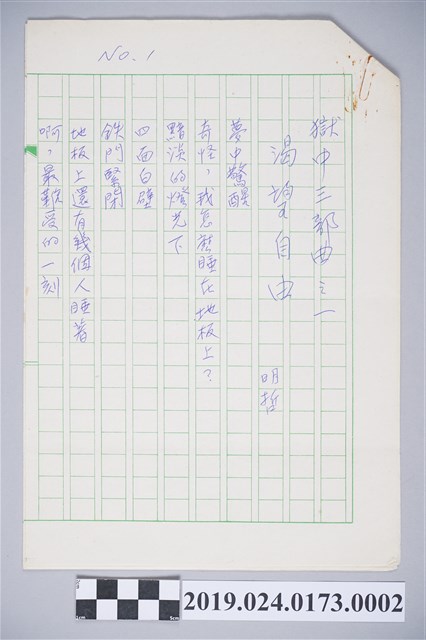 No. 1
獄中三部曲之一
渴望自由
明哲
夢中驚醒
奇怪，我怎麼睡在地板上？
黯淡的燈光下
四面白壁
鉄門緊閉
地板上還有幾個人睡著
啊，最難受的一刻
1cm
5cm
2019.024.0173.0002